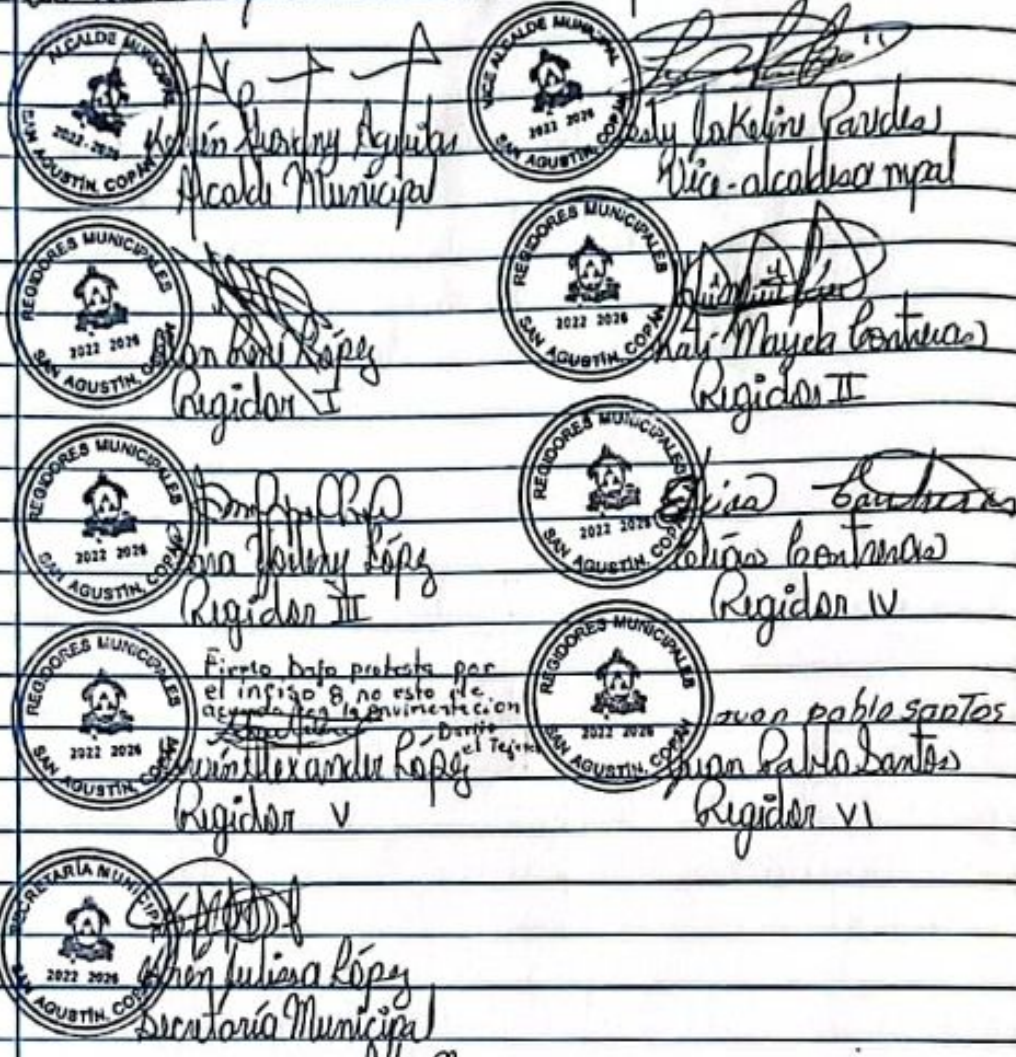 ALCALDE MUNICIPAL
2022-2026
SAN AGUSTÍN, COPÁN
Aguilar
Alcalde Municipal
VICE ALCALDE MUNICIPAL
2022 2026
SAN AGUSTÍN, COPÁN
Paredes
Vice-alcaldesa mpal
REGIDORES MUNICIPALES
2022 2026
SAN AGUSTÍN, COPÁN
René López
Regidor I
REGIDORES MUNICIPALES
2022 2026
SAN AGUSTÍN, COPÁN
Mayela Contreras
Regidor II
REGIDORES MUNICIPALES
2022 2026
SAN AGUSTÍN, COPÁN
López
Regidor III
REGIDORES MUNICIPALES
2022 2026
SAN AGUSTÍN, COPÁN
Contreras
Elías Contreras
Regidor IV
REGIDORES MUNICIPALES
2022 2026
SAN AGUSTÍN, COPÁN
Firmo bajo protesta por
el inciso 8 no esto de
acuerdo con la pavimentacion
Barrio
el
Alexander López
Regidor V
REGIDORES MUNICIPALES
2022 2026
SAN AGUSTÍN, COPÁN
juan pablo santos
Juan Pablo Santos
Regidor VI
SECRETARÍA MUNICIPAL
2022 2026
SAN AGUSTÍN, COPÁN
Julissa López
Secretaría Municipal